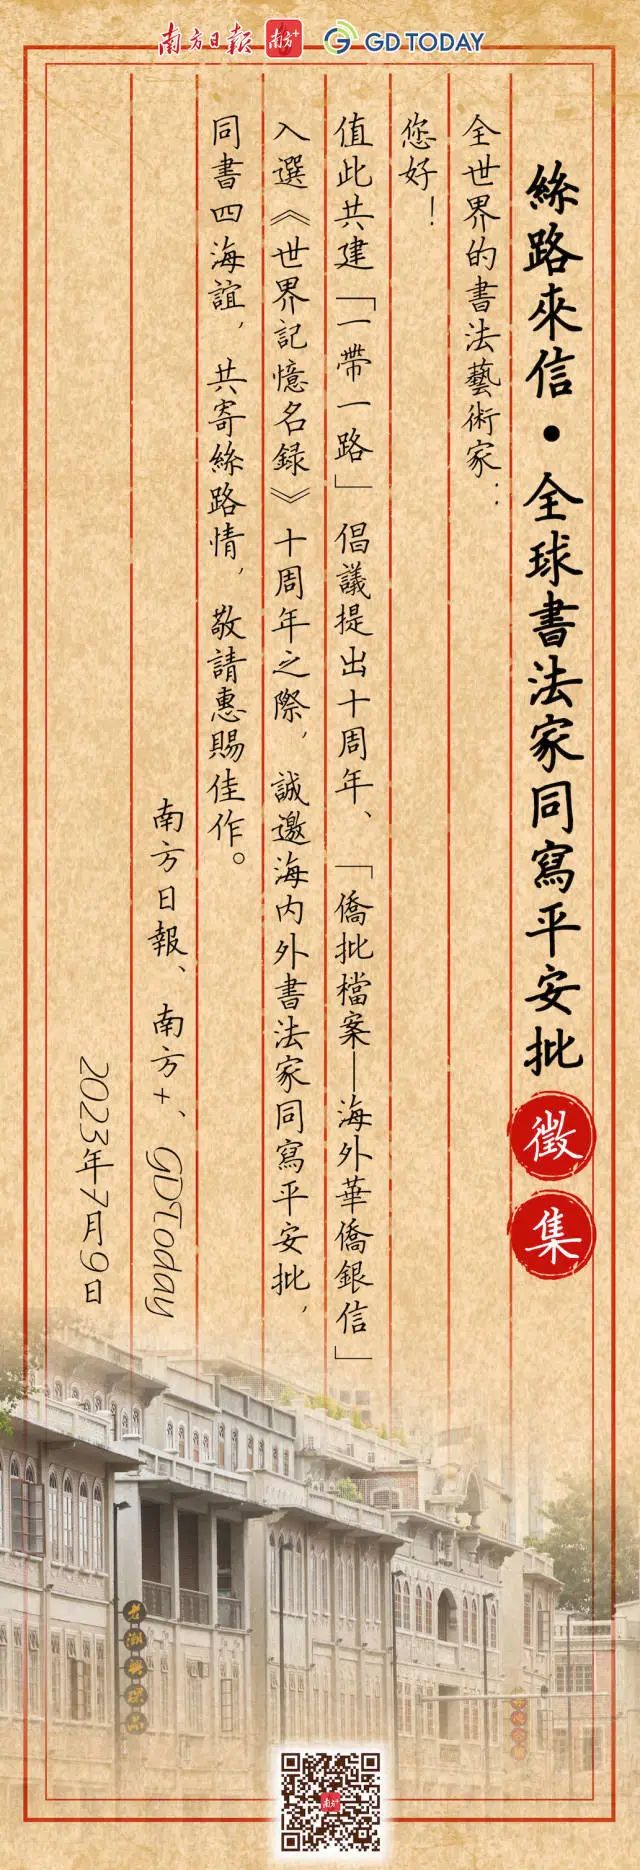 南方日报 南方+ GDTODAY
絲路來信·全球書法家同寫平安批
徵集
全世界的書法藝術家：
您好！
值此共建「一帶一路」倡議提出十周年、「僑批檔案—海外華僑銀信」
入選《世界記憶名録》十周年之際，誠邀海内外書法家同寫平安批，
同書四海誼，共寄絲路情，敬請惠賜佳作。
南方日報、南方+、GDToday
2023年7月9日
南方+